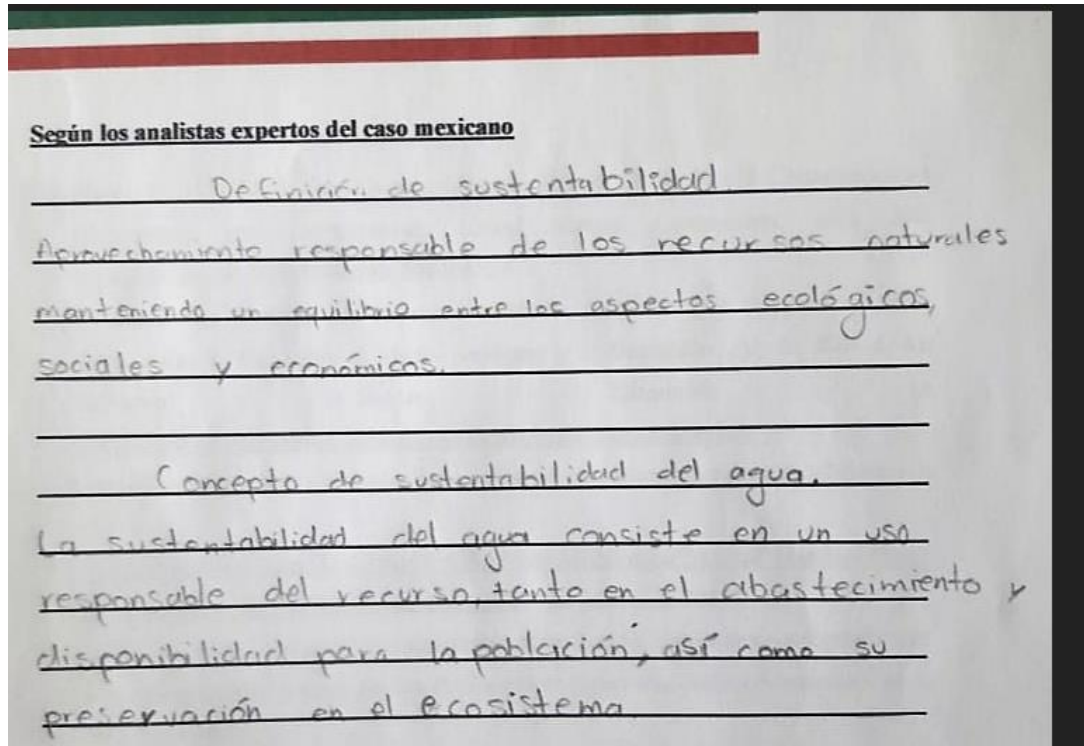 Según los analistas expertos del caso mexicano
Definición de sustentabilidad.
Aprovechamiento responsable de los recursos naturales
manteniendo un equilibrio entre los aspectos ecológicos,
sociales y económicos.
Concepto de sustentabilidad del agua.
La sustentabilidad del agua consiste en un uso
responsable del recurso, tanto en el abastecimiento y
disponibilidad para la población, así como su
preservación en el ecosistema.